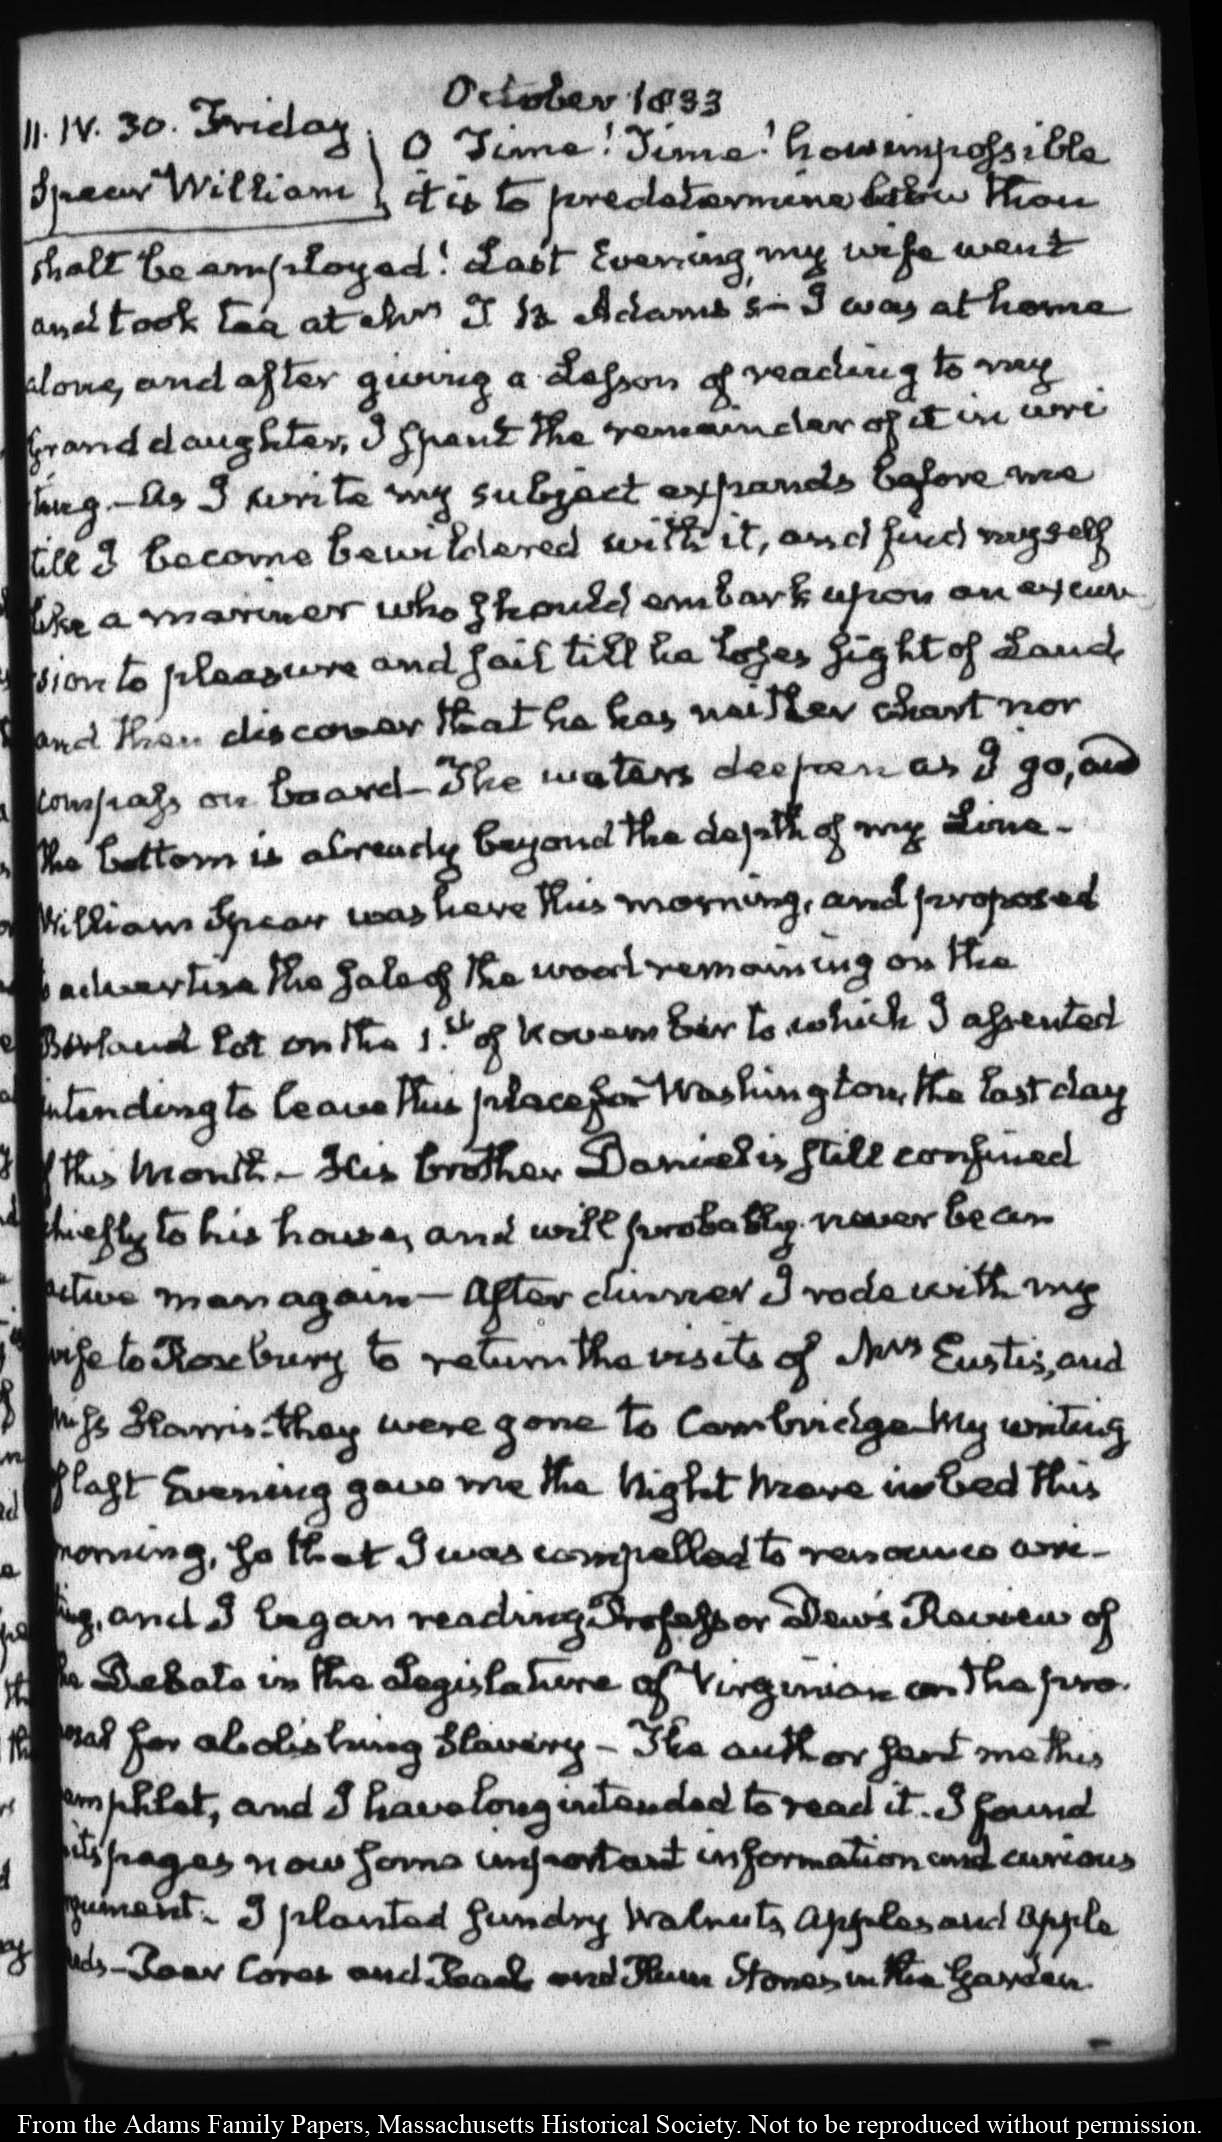 October 1833
11. IV. 30. Friday
Spear William
O Time! Time! how impossible
it is to predetermine how thou
shalt be employed! Last Evening, my wife went
and took tea at Mrs T B Adams's - I was at home
alone, and after giving a Lesson of reading to my
Grand daughter, I spent the remainder of it in wri
ting. - As I write my subject expands before me
till I become bewildered with it, and find myself
like a mariner who should embark upon an excur
sion to pleasure and sail till he loses sight of Land,
and then discover that he has neither chart nor
compass on board - The waters deepen as I go, and
the bottom is already beyond the depth of my Line -
William Spear was here this morning, and proposed
to advertise the sale of the wood remaining on the
Borland lot on the 1.st of November to which I assented
intending to leave this place for Washington, the last day
of this Month - His brother Daniel is still confined
chiefly to his house, and will probably never be an
active man again - After dinner I rode with my
wife to Roxbury to return the visits of Mrs Eustis, and
Miss Harris - they were gone to Cambridge - My writing
of last Evening gave me the Night Mare in bed this
morning, so that I was compelled to renounce wri-
ting, and I began reading Professor Dew's Review of
the Debate in the Legislature of Virginia on the pro-
posal for abolishing Slavery - The author sent me this
pamphlet, and I have long intended to read it. I found
in its pages now some important information and curious
argument - I planted sundry Walnuts, Apples and Apple
seeds - Pear Cores and Peach and Plum Stones in the Garden.
From the Adams Family Papers, Massachusetts Historical Society. Not to be reproduced without permission.